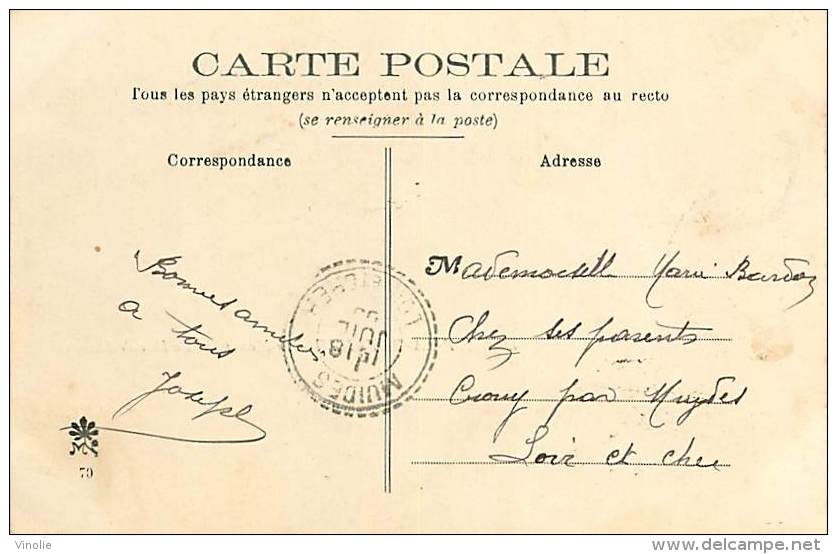 CARTE POSTALE
Tous les pays étrangers n'acceptent pas la correspondance au recto
(se renseigner à la poste)
Correspondance
Adresse
Bonnes amitiés
a tous
Joseph
Mademoiselle Marie
Chez ses parents
Crouy par Muydes
Loir et cher
MUIDES
LOIR ET CHER
JUIL
M
79
Vinolie
delcampe.net